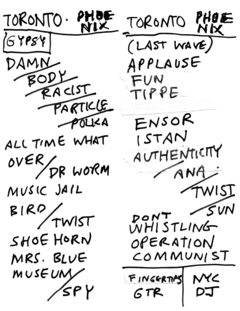 TORONTO · PHOE
NIX
GYPSY
DAMN
BODY
RACIST
PARTICLE
POLKA
ALL TIME WHAT
OVER/
DR WORM
MUSIC JAIL
BIRD/
TWIST
SHOE HORN
MRS. BLUE
MUSEUM/
SPY
TORONTO PHOE
NIX
(LAST WAVE)
APPLAUSE
FUN
TIPPE
ENSOR
ISTAN
AUTHENTICITY
ANA
TWIST
SUN
DONT
WHISTLING
OPERATION
COMMUNIST
FINGERTIPS
GTR
NYC
DJ